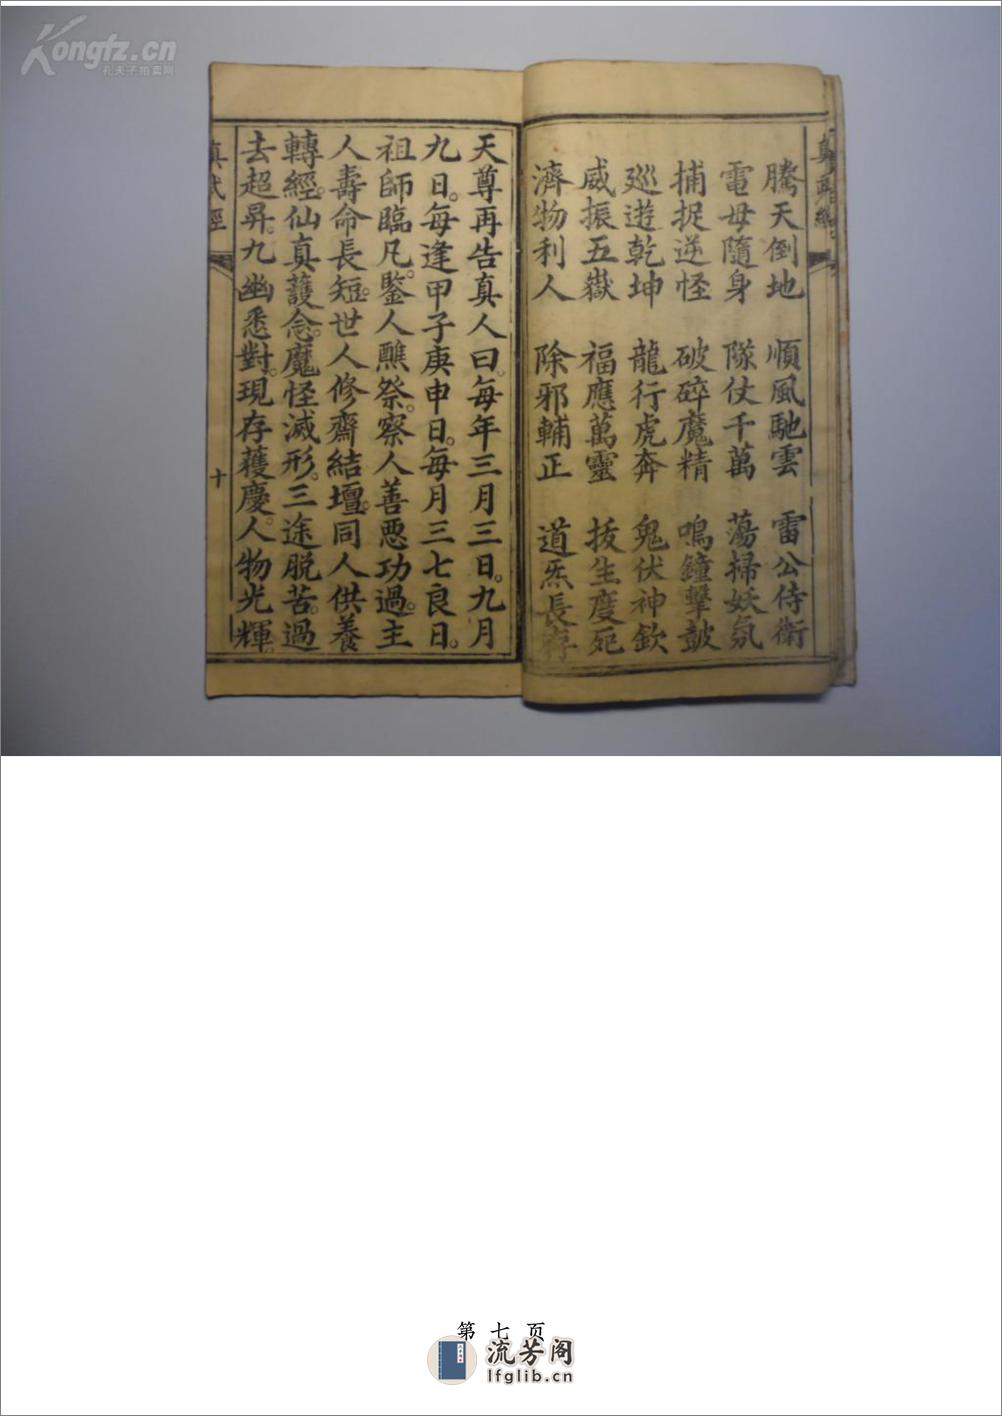 Kongfz.cn
孔夫子拍卖网
騰天倒地 順風馳雲 雷公侍衛
電母隨身 隊仗千萬 蕩掃妖氛
捕捉逆怪 破碎魔精 鳴鐘擊鼓
廵遊乾坤 龍行虎奔 鬼伏神欽
威振五嶽 福應萬靈 拔生度死
濟物利人 除邪輔正 道炁長存
天尊再告真人曰。每年三月三日。九月
九日。每逢甲子庚申日。每月三七良日。
祖師臨凡。鑒人醮祭。察人善惡功過。主
人壽命長短。世人修齋結壇。同人供養
轉經。仙真護念。魔怪滅形。三途脫苦。過
去超昇。九幽悉對。現存獲慶。人物光輝。
真武經
十
第 七 页
流芳阁
lfglib.cn